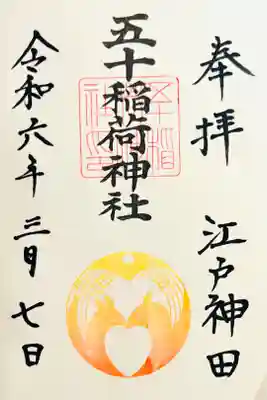 奉拝
江戸神田
五十稲荷神社
令和六年三月七日